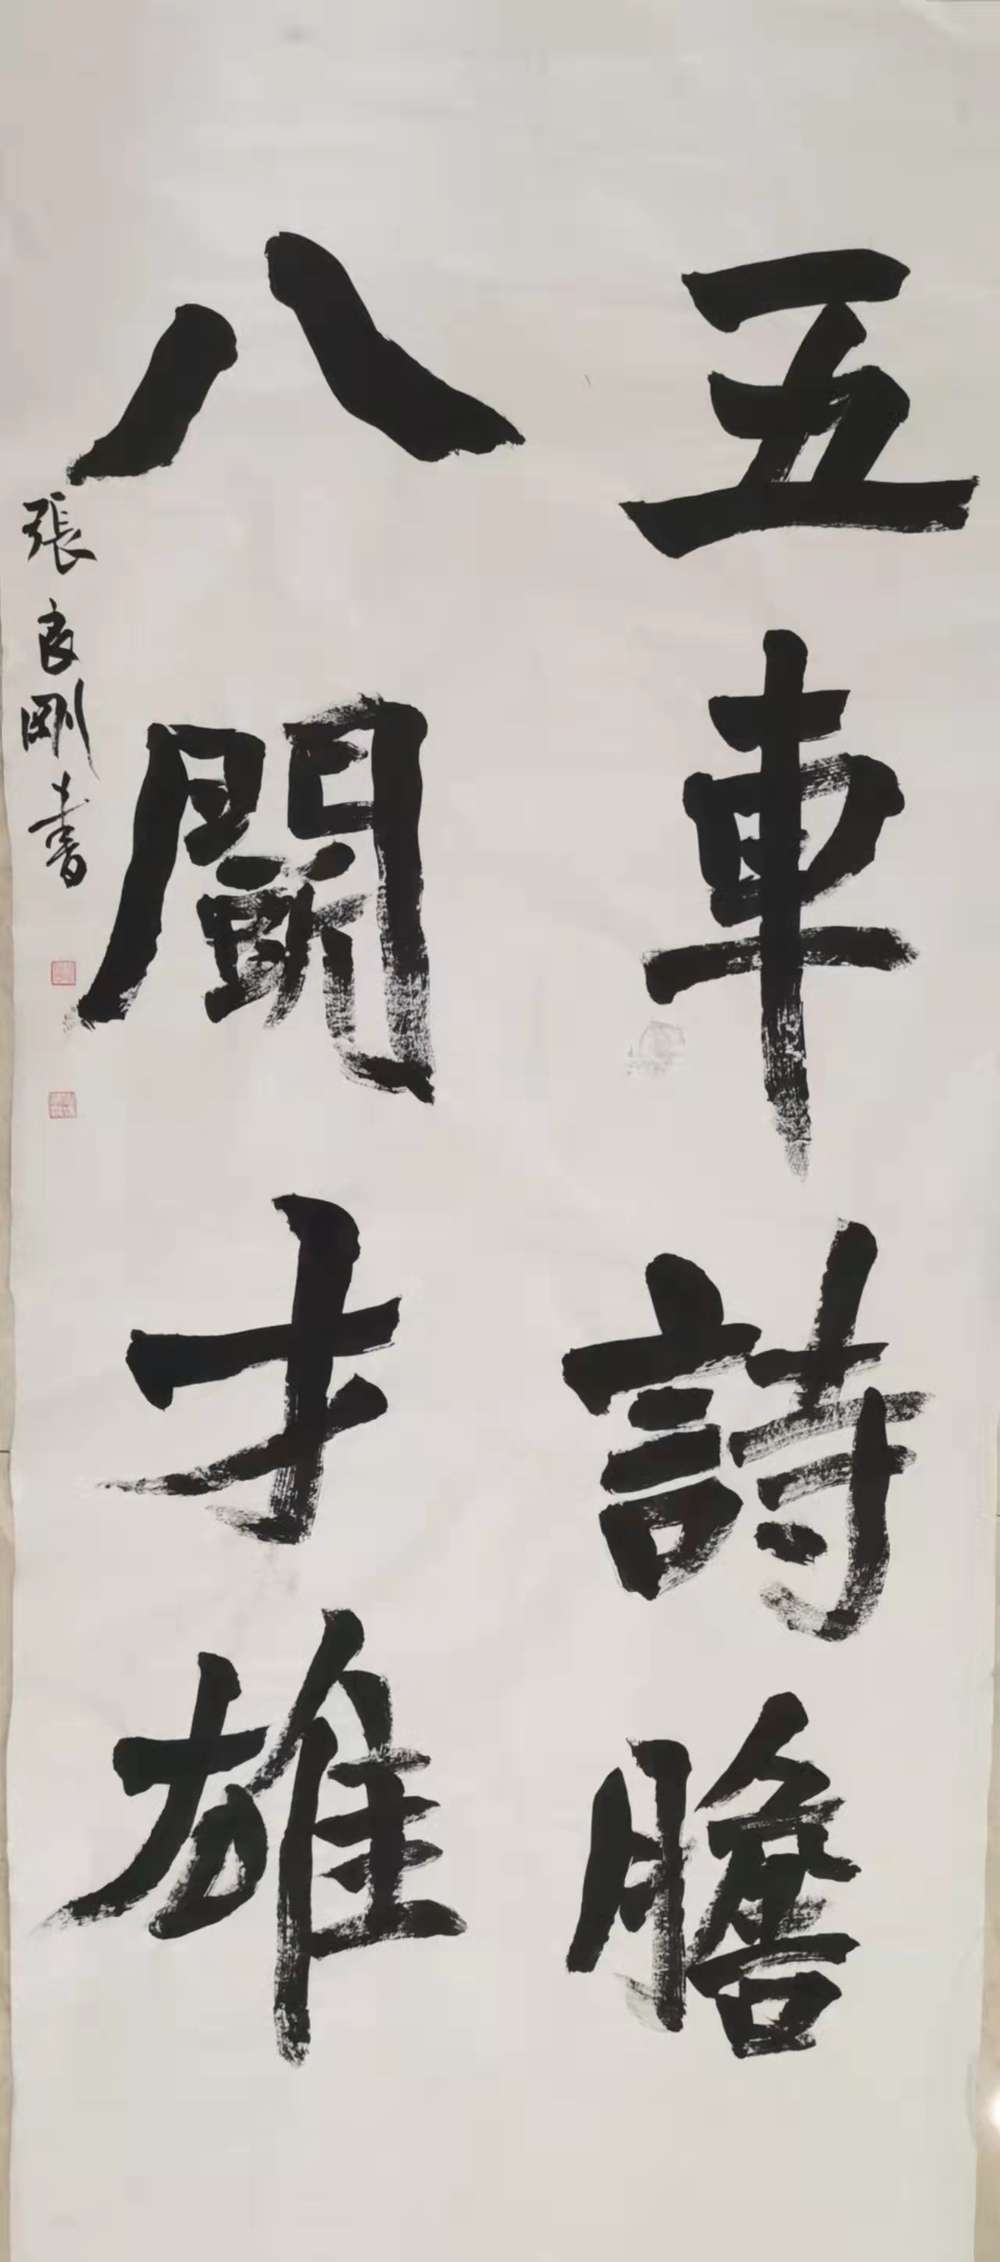 五車詩膽
八鬭才雄
張良剛書